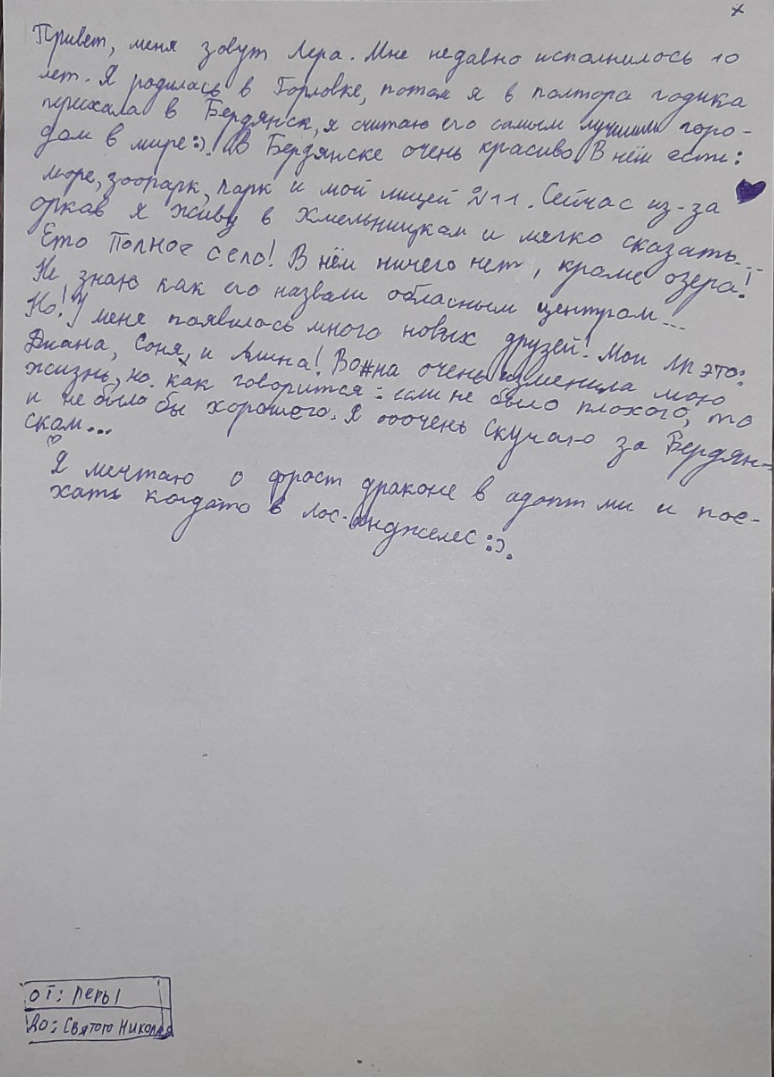 Привет, меня зовут Лера. Мне недавно исполнилось 10
лет. Я родилась в Горловке, потом я в полтора годика
переехала в Бердянск, я считаю его самым лучшим горо-
дом в мире:). В Бердянске очень красиво. В нём есть:
море, зоопарк, парк и мой лицей №11. Сейчас из-за
орков я живу в Хмельницком и мягко сказать...
Ето Полное село! В нём ничего нет, кроме озера!
Не знаю как его назвали обласным центром...
Но! У меня появилось много новых друзей! Мои ЛП это:
Диана, Соня, и Алина! Во*на очень изменила мою
жизнь, но как говорится: если не было плохого, то
и не было бы хорошего. Я ооочень скучаю за Бердян-
ском...
Я мечтаю о фрост драконе в адопт ми и пое-
хать когдато в Лос-Анджелес:).
ОТ: Леры
ДО: Святого Николая